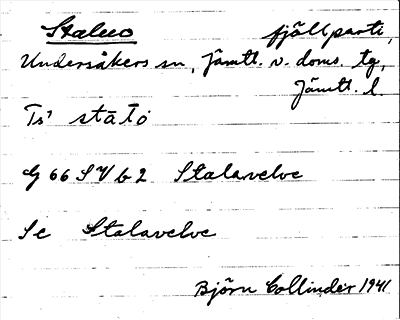 Staluo fjällparti,
Undersåkers sn, Jämtl. v. doms. tg,
Jämtl. l.
Ts' stālo
G 66 S V b 2 Stalavelve
Se Stalavelve
Björn Collinder 1941